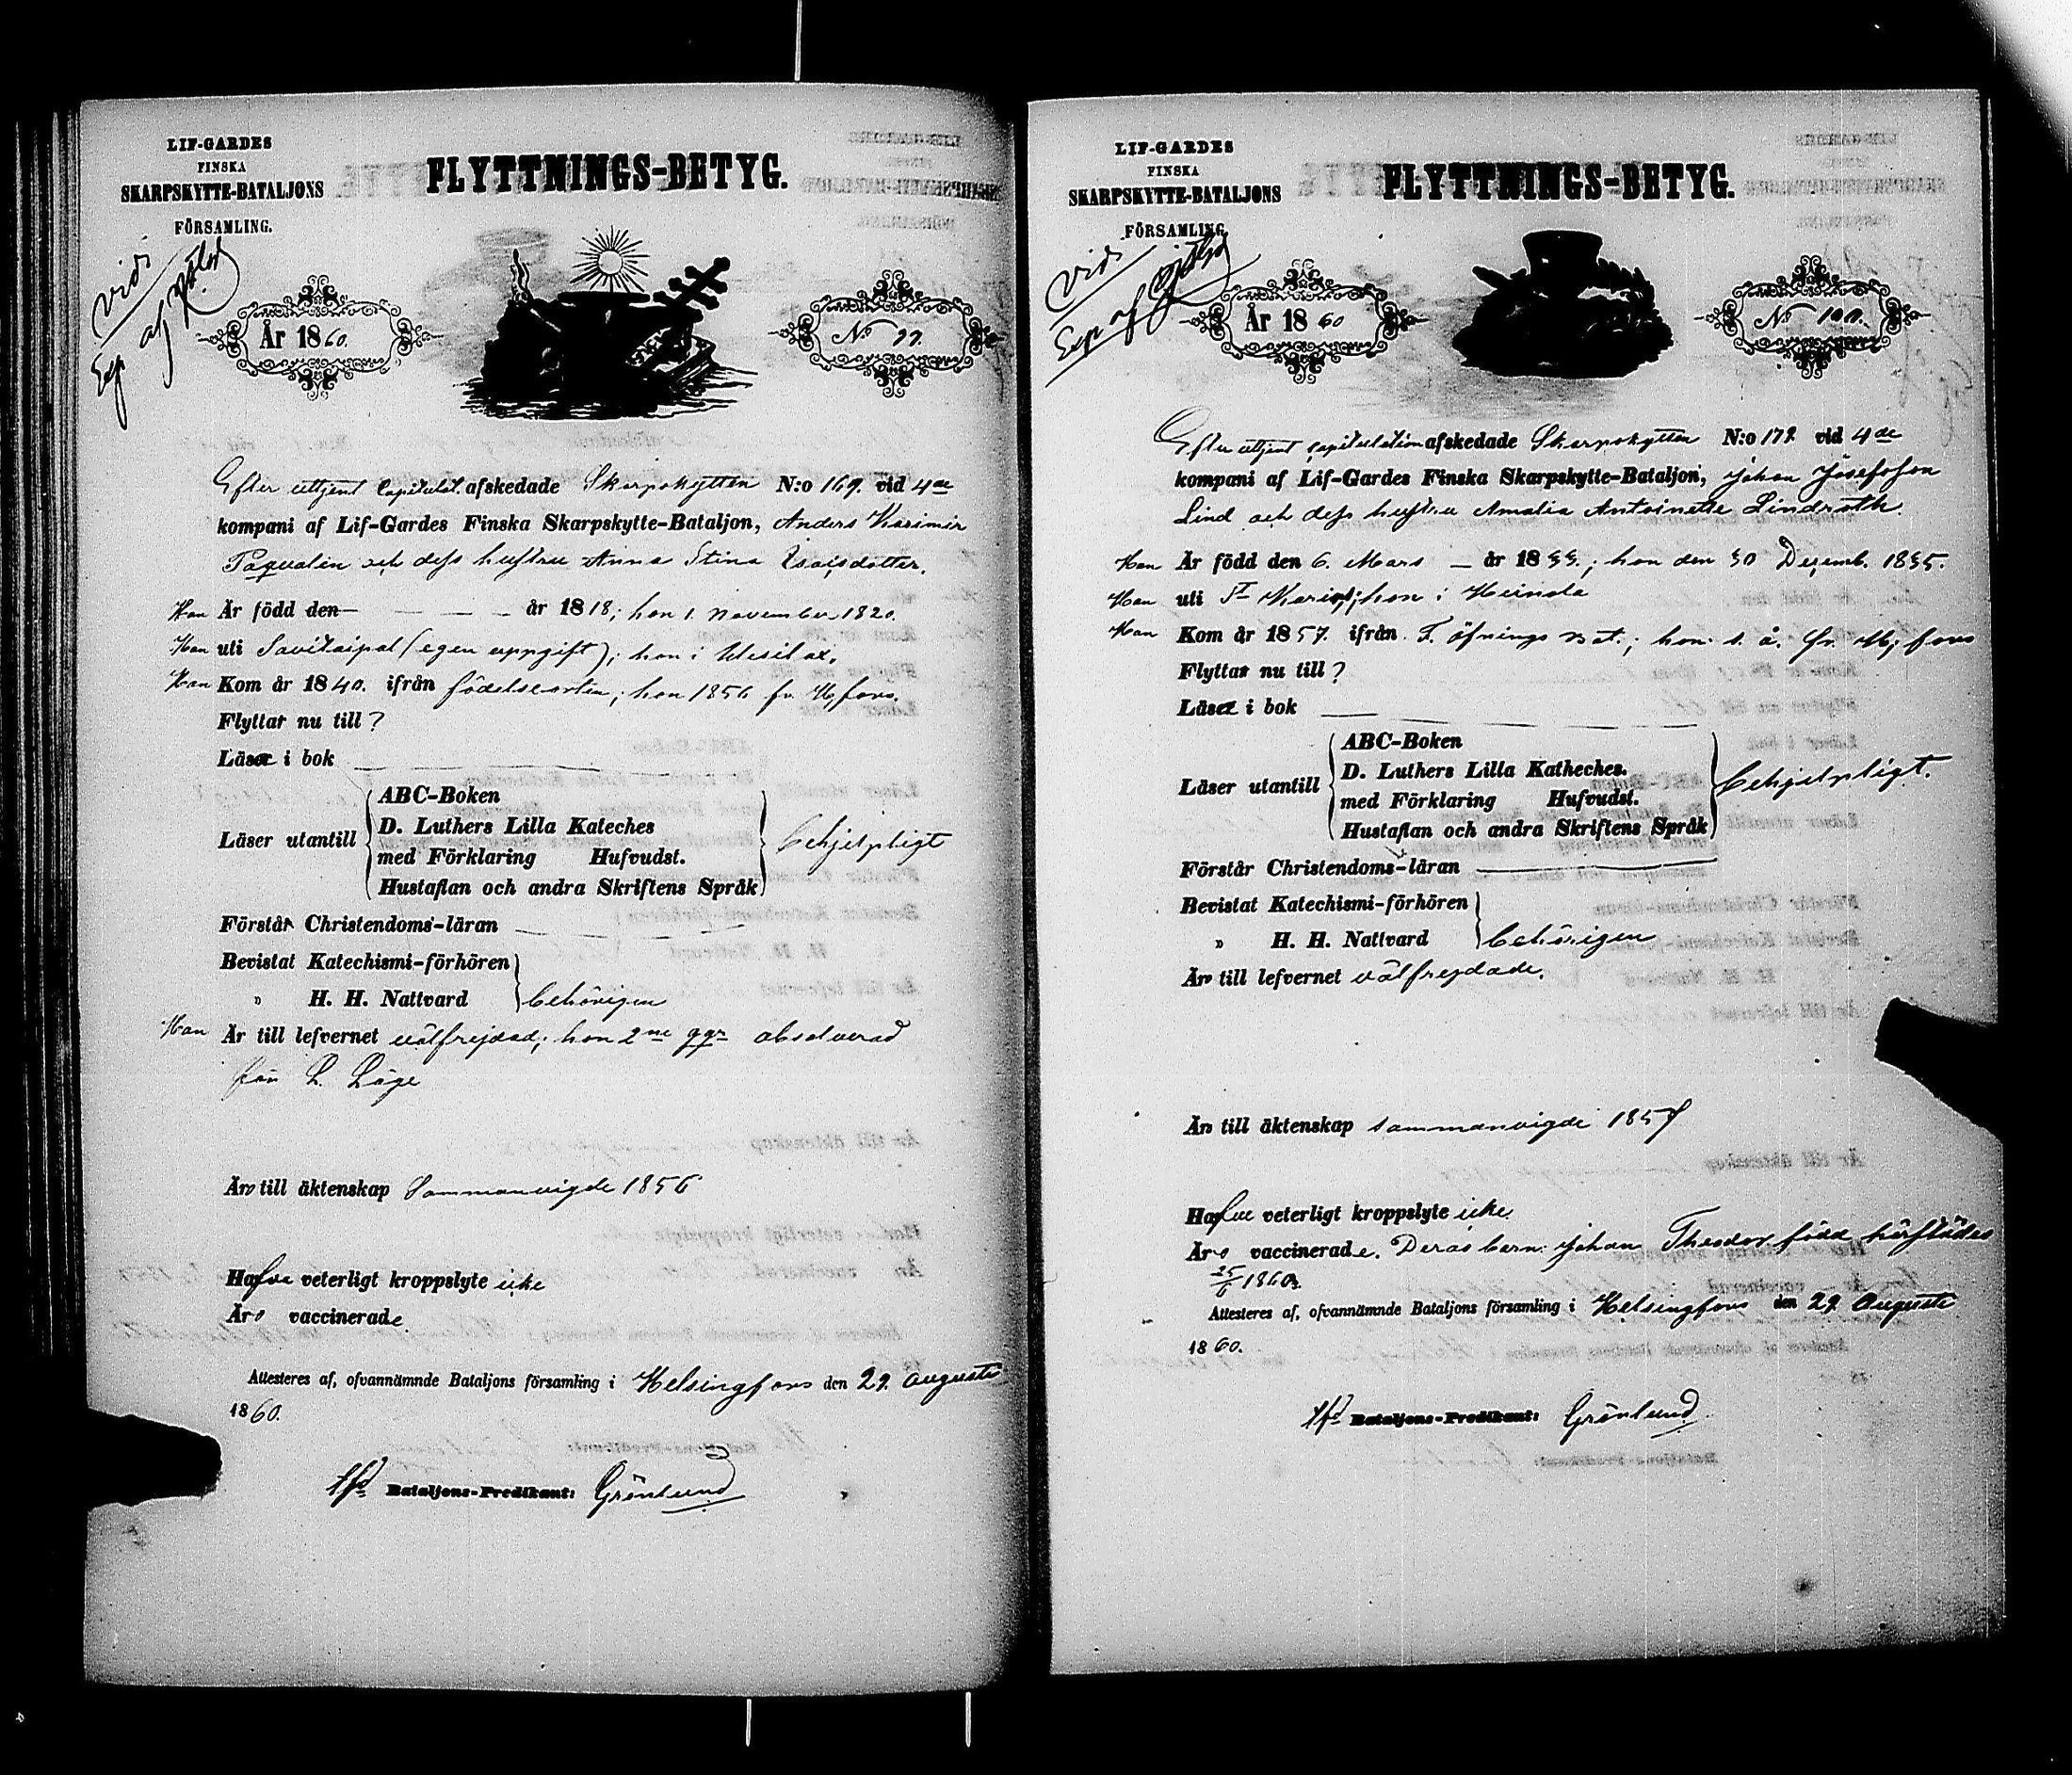 LIF-GARDES
FINSKA
SKARPSKYTTE-BATALJONS
FÖRSAMLING.
FLYTTNINGS-BETYG.
vidi
År 1860.
No 99.
Efter uttjent Capitulat. afskedade Skarpskytten N:o 169. vid 4de
kompani af Lif-Gardes Finska Skarpskytte-Bataljon, Anders Kasimir
Paqvalin och dess hustru Anna Stina Esaisdotter.
Han Är född den — — — år 1818; hon 1 November 1820.
Han uti Savitaipal (egen uppgift); hon i Wesilax.
Han Kom år 1840. ifrån födelseorten; hon 1856 fr. H;fors.
Flyttar nu till?
Läser i bok
Läser utantill
ABC-Boken
D. Luthers Lilla Kateches
med Förklaring Hufvudst.
Hustaflan och andra Skriftens Språk
behjelpligt
Förstår Christendoms-läran
Bevistat Katechismi-förhören
" H. H. Nattvard
behörigen
Han Är till lefvernet välfrejdad; hon 2ne ggr absolverad
för L. Läge
Äro till äktenskap Sammanvigde 1856
Hafva veterligt kroppslyte icke
Äro vaccinerade.
Attesteres af, ofvannämnde Bataljons församling i Helsingfors den 29. Augusti
1860.
tfd Bataljons-Predikant: Grönlund
LIF-GARDES
FINSKA
SKARPSKYTTE-BATALJONS
FÖRSAMLING.
FLYTTNINGS-BETYG.
vidi
År 1860
No 100.
Efter uttjent capitulation afskedade Skarpskytten N:o 179. vid 4de
kompani af Lif-Gardes Finska Skarpskytte-Bataljon, Johan Josefsson
Lind och dess hustru Amalia Antoinette Lindroth.
Han Är född den 6. Mars — år 1833.; hon den 30 Decemb. 1835.
Han uti St Marie; hon i Heinola
Han Kom år 1857. ifrån F. öfnings bat.; hon s. å. fr. H;fors
Flyttar nu till?
Läser i bok
Läser utantill
ABC-Boken
D. Luthers Lilla Katheches.
med Förklaring Hufvudst.
Hustaflan och andra Skriftens Språk
behjelpligt.
Förstår Christendoms-läran
Bevistat Katechismi-förhören
" H. H. Nattvard
behörigen
Äro till lefvernet välfrejdade.
Äro till äktenskap sammanvigde 1857
Hafva veterligt kroppslyte icke.
Äro vaccinerade. Deras barn: Johan Theodor född härstädes
25/6 1860.
Attesteres af, ofvannämnde Bataljons församling i Helsingfors den 29. Augusti
1860.
tfd Bataljons-Predikant: Grönlund.